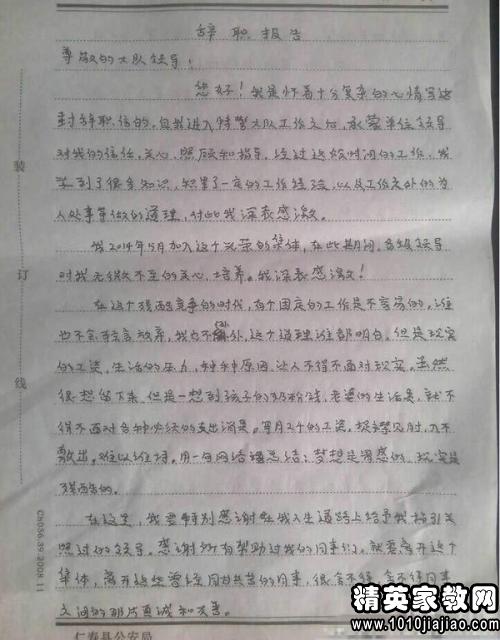 辞职报告
尊敬的大队领导:
您好!我是怀着十分复杂的心情写这
封辞职信的。自我进入特警大队工作之后,承蒙单位领导
对我的信任,关心、照顾和指导,经过这段时间的工作,我
学到了很多知识,积累了一定的工作经验,以及工作之外的为
人处事等做的道理,对此我深表感激。
我2014年5月加入这个光荣的集体,在此期间,各级领导
对我无微不至的关心、培养。我深表感激!
在这个残酷竞争的时代,有个固定的工作是不容易的。谁
也不会轻言放弃,我也不例外,这个道理谁都明白。但是现实
的工资,生活的压力,种种原因,让人不得不面对现实。虽然
很想留下来,但是一想到孩子的奶粉钱,老婆的生活费,就不
得不面对各种必须的支出消费。每月2千的工资,捉襟见肘,入不
敷出。难以维持。用一句网络语总结:梦想是满感的,现实是
残酷的。
在这里,我要特别感谢在我人生道路上给予我指引关
照过的领导。感谢所有帮助过我的同事们。就要离开这个
集体,离开这些曾经同甘共苦的同事,很舍不得,舍不得同事
之间的那片真诚和友善。
装
订
线
Ch036.39 2008.11
仁寿县公安局
精英家教网
www.1010jiajiao.com